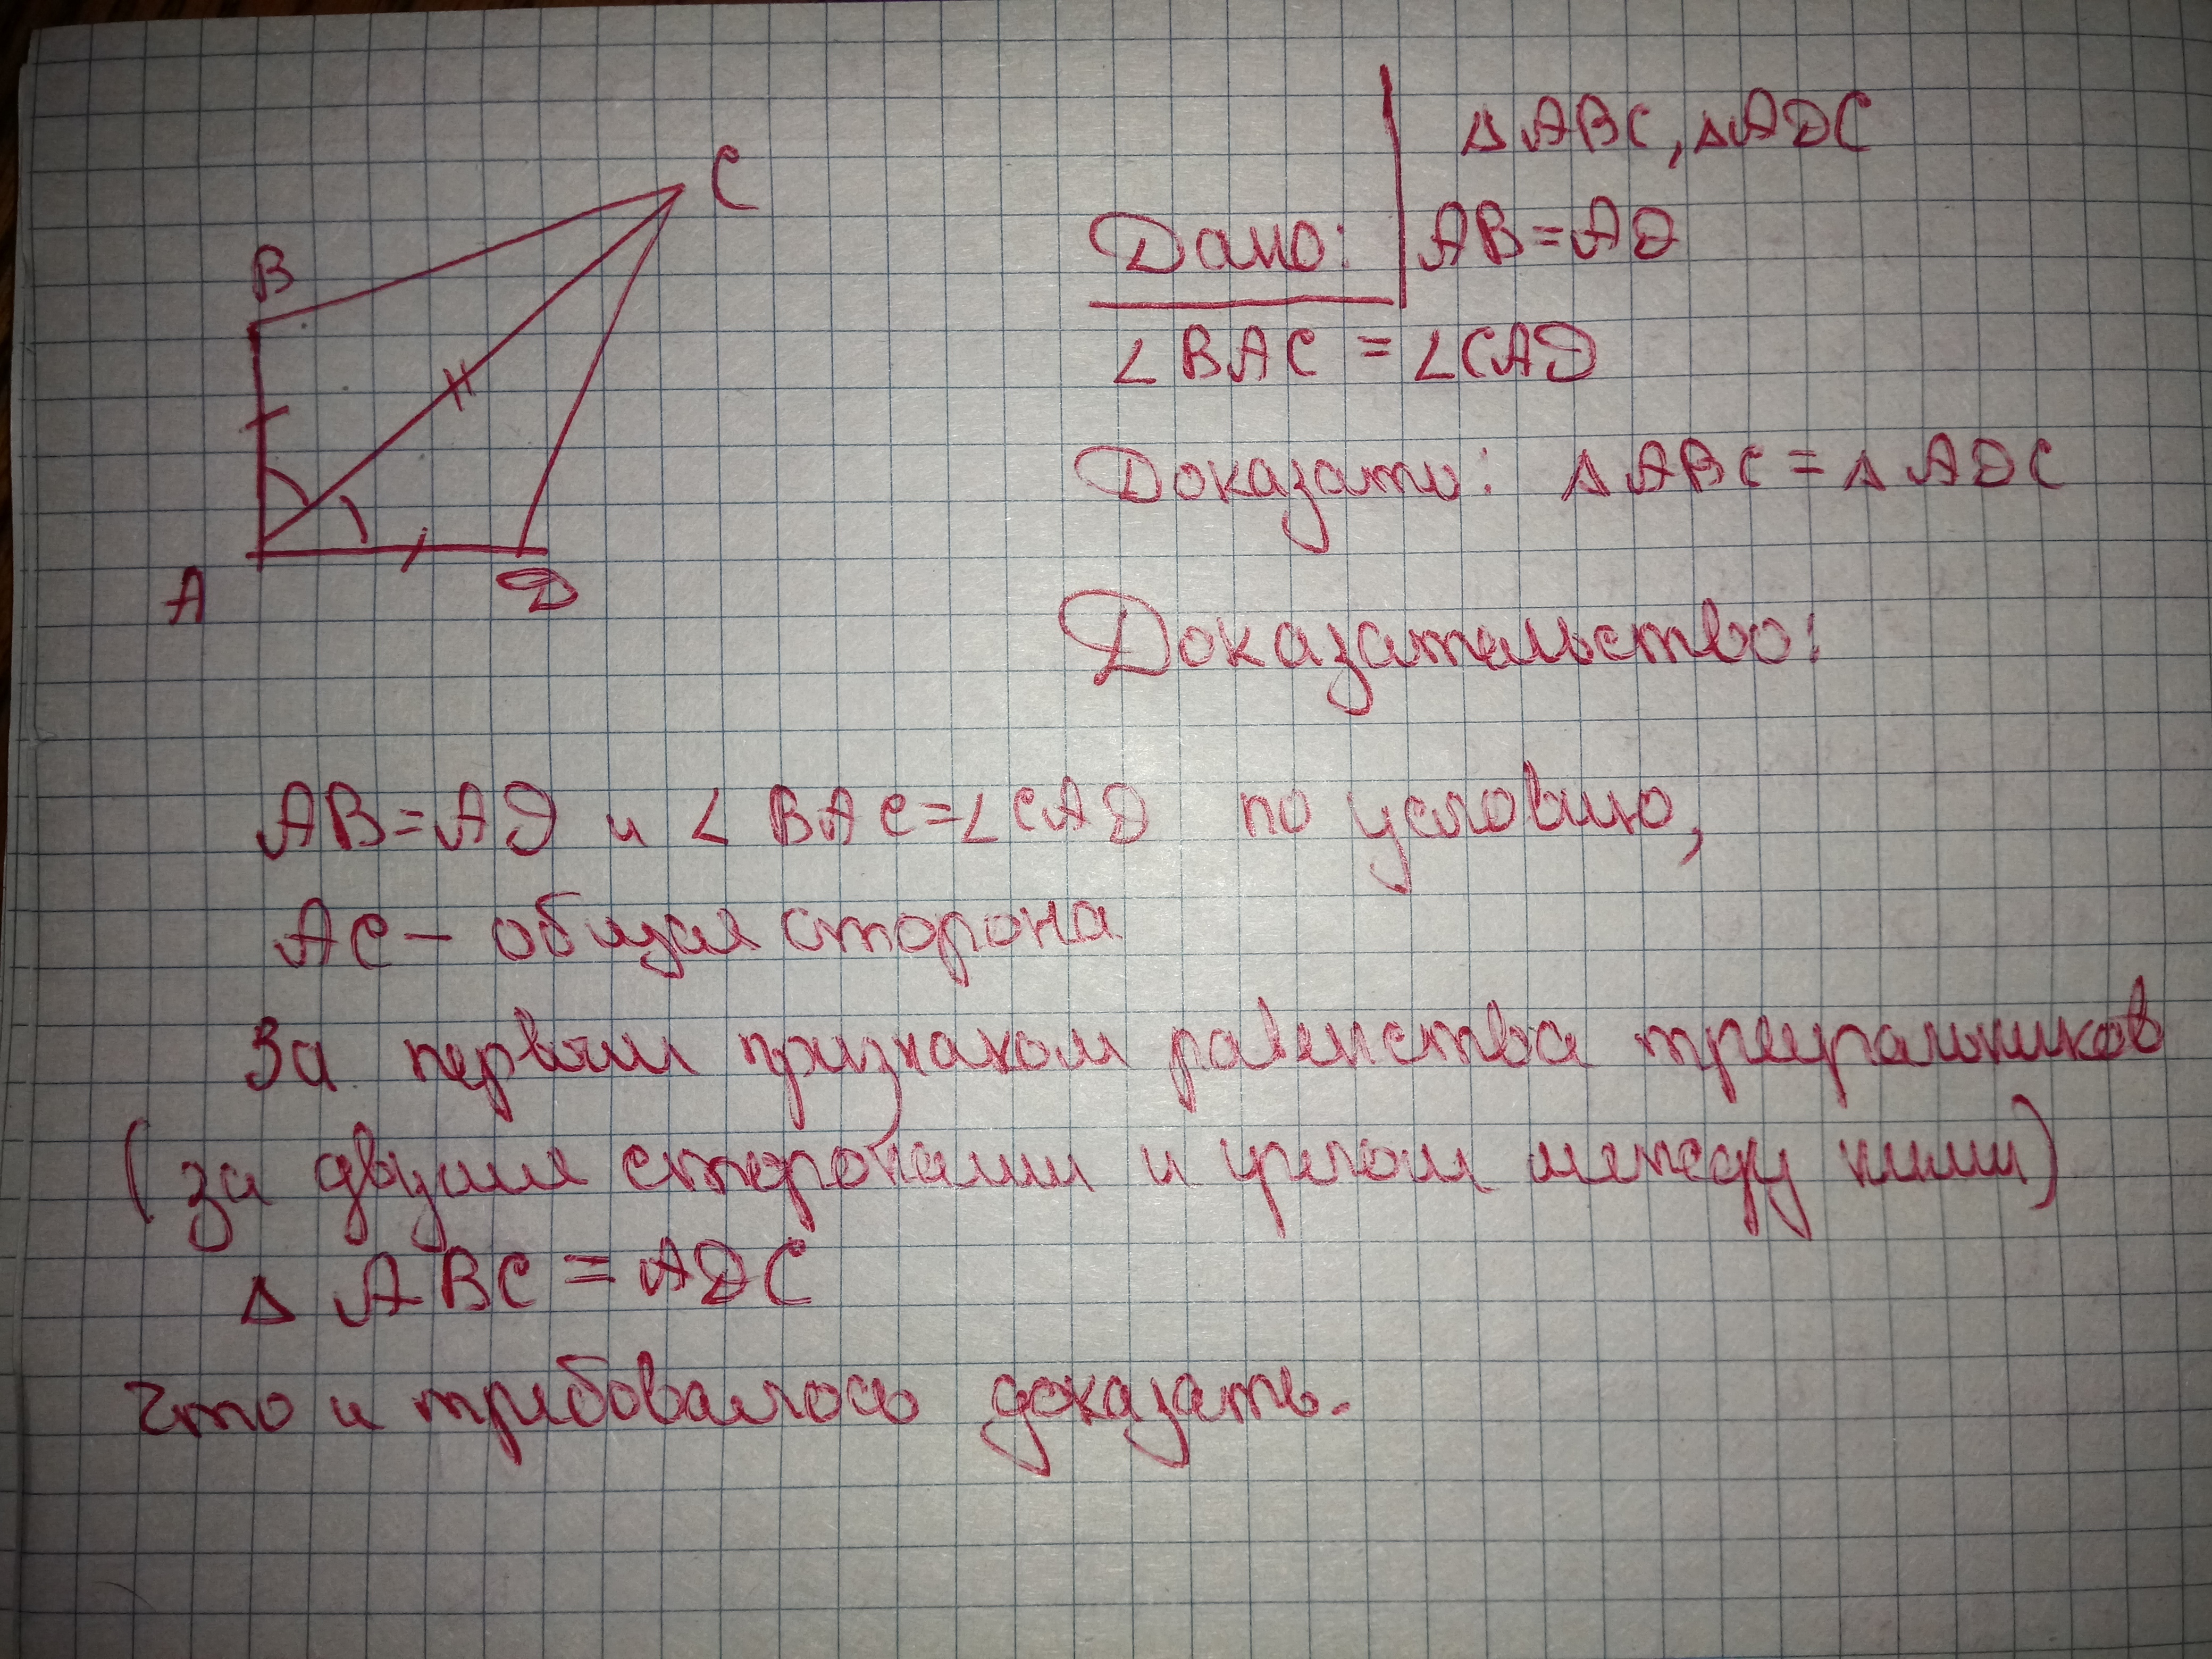 C
B
A
D
△ABC, △ADC
Дано: AB=AD
∠BAC = ∠CAD
Доказати: △ABC = △ADC
Доказательство:
AB=AD и ∠BAC=∠CAD по условию,
AC – общая сторона
За первым признаком равенства треугольников
(за двумя сторонами и углом между ними)
△ ABC = ADC
Что и требовалось доказать.